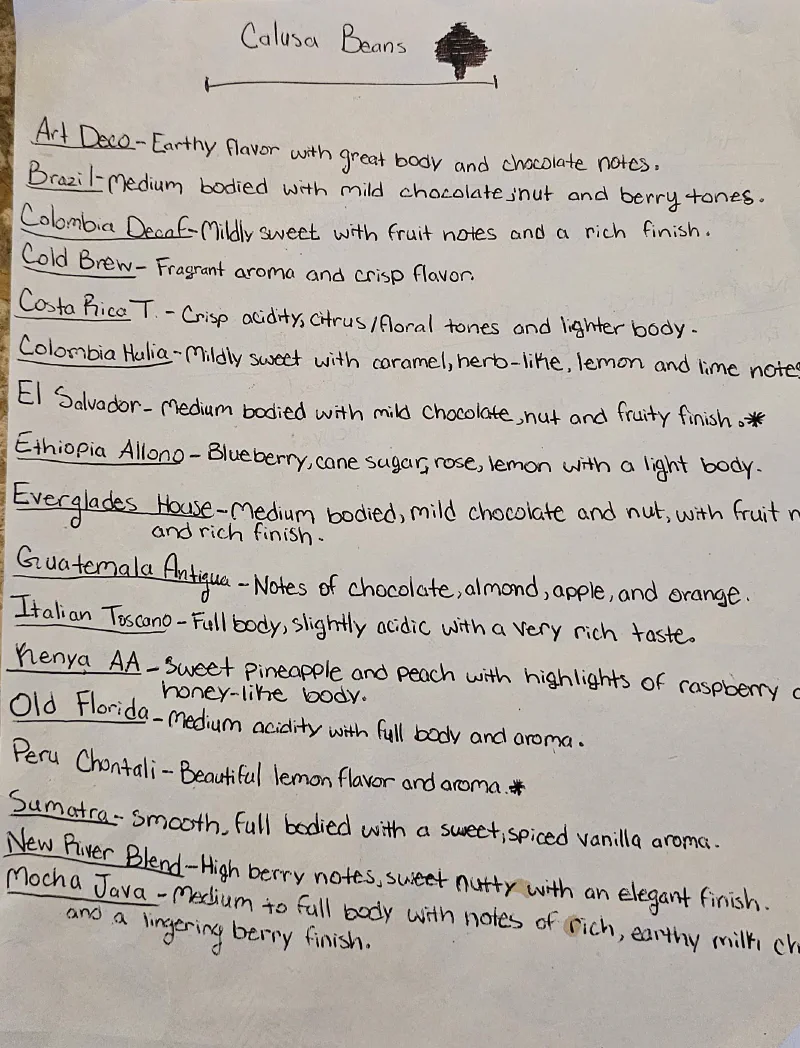 Calusa Beans
Art Deco - Earthy flavor with great body and chocolate notes.
Brazil - Medium bodied with mild chocolate, nut and berry tones.
Colombia Decaf - Mildly sweet with fruit notes and a rich finish.
Cold Brew - Fragrant aroma and crisp flavor.
Costa Rica T. - Crisp acidity, citrus/floral tones and lighter body.
Colombia Hulia - Mildly sweet with caramel, herb-like, lemon and lime notes
El Salvador - Medium bodied with mild chocolate, nut and fruity finish. *
Ethiopia Allono - Blueberry, cane sugar, rose, lemon with a light body.
Everglades House - Medium bodied, mild chocolate and nut, with fruit n
and rich finish.
Guatemala Antigua - Notes of chocolate, almond, apple, and orange.
Italian Toscano - Full body, slightly acidic with a very rich taste.
Kenya AA - Sweet pineapple and peach with highlights of raspberry
honey-like body.
Old Florida - Medium acidity with full body and aroma.
Peru Chontali - Beautiful lemon flavor and aroma. *
Sumatra - Smooth, full bodied with a sweet, spiced vanilla aroma.
New River Blend - High berry notes, sweet nutty with an elegant finish.
Mocha Java - Medium to full body with notes of rich, earthy milk ch
and a lingering berry finish.